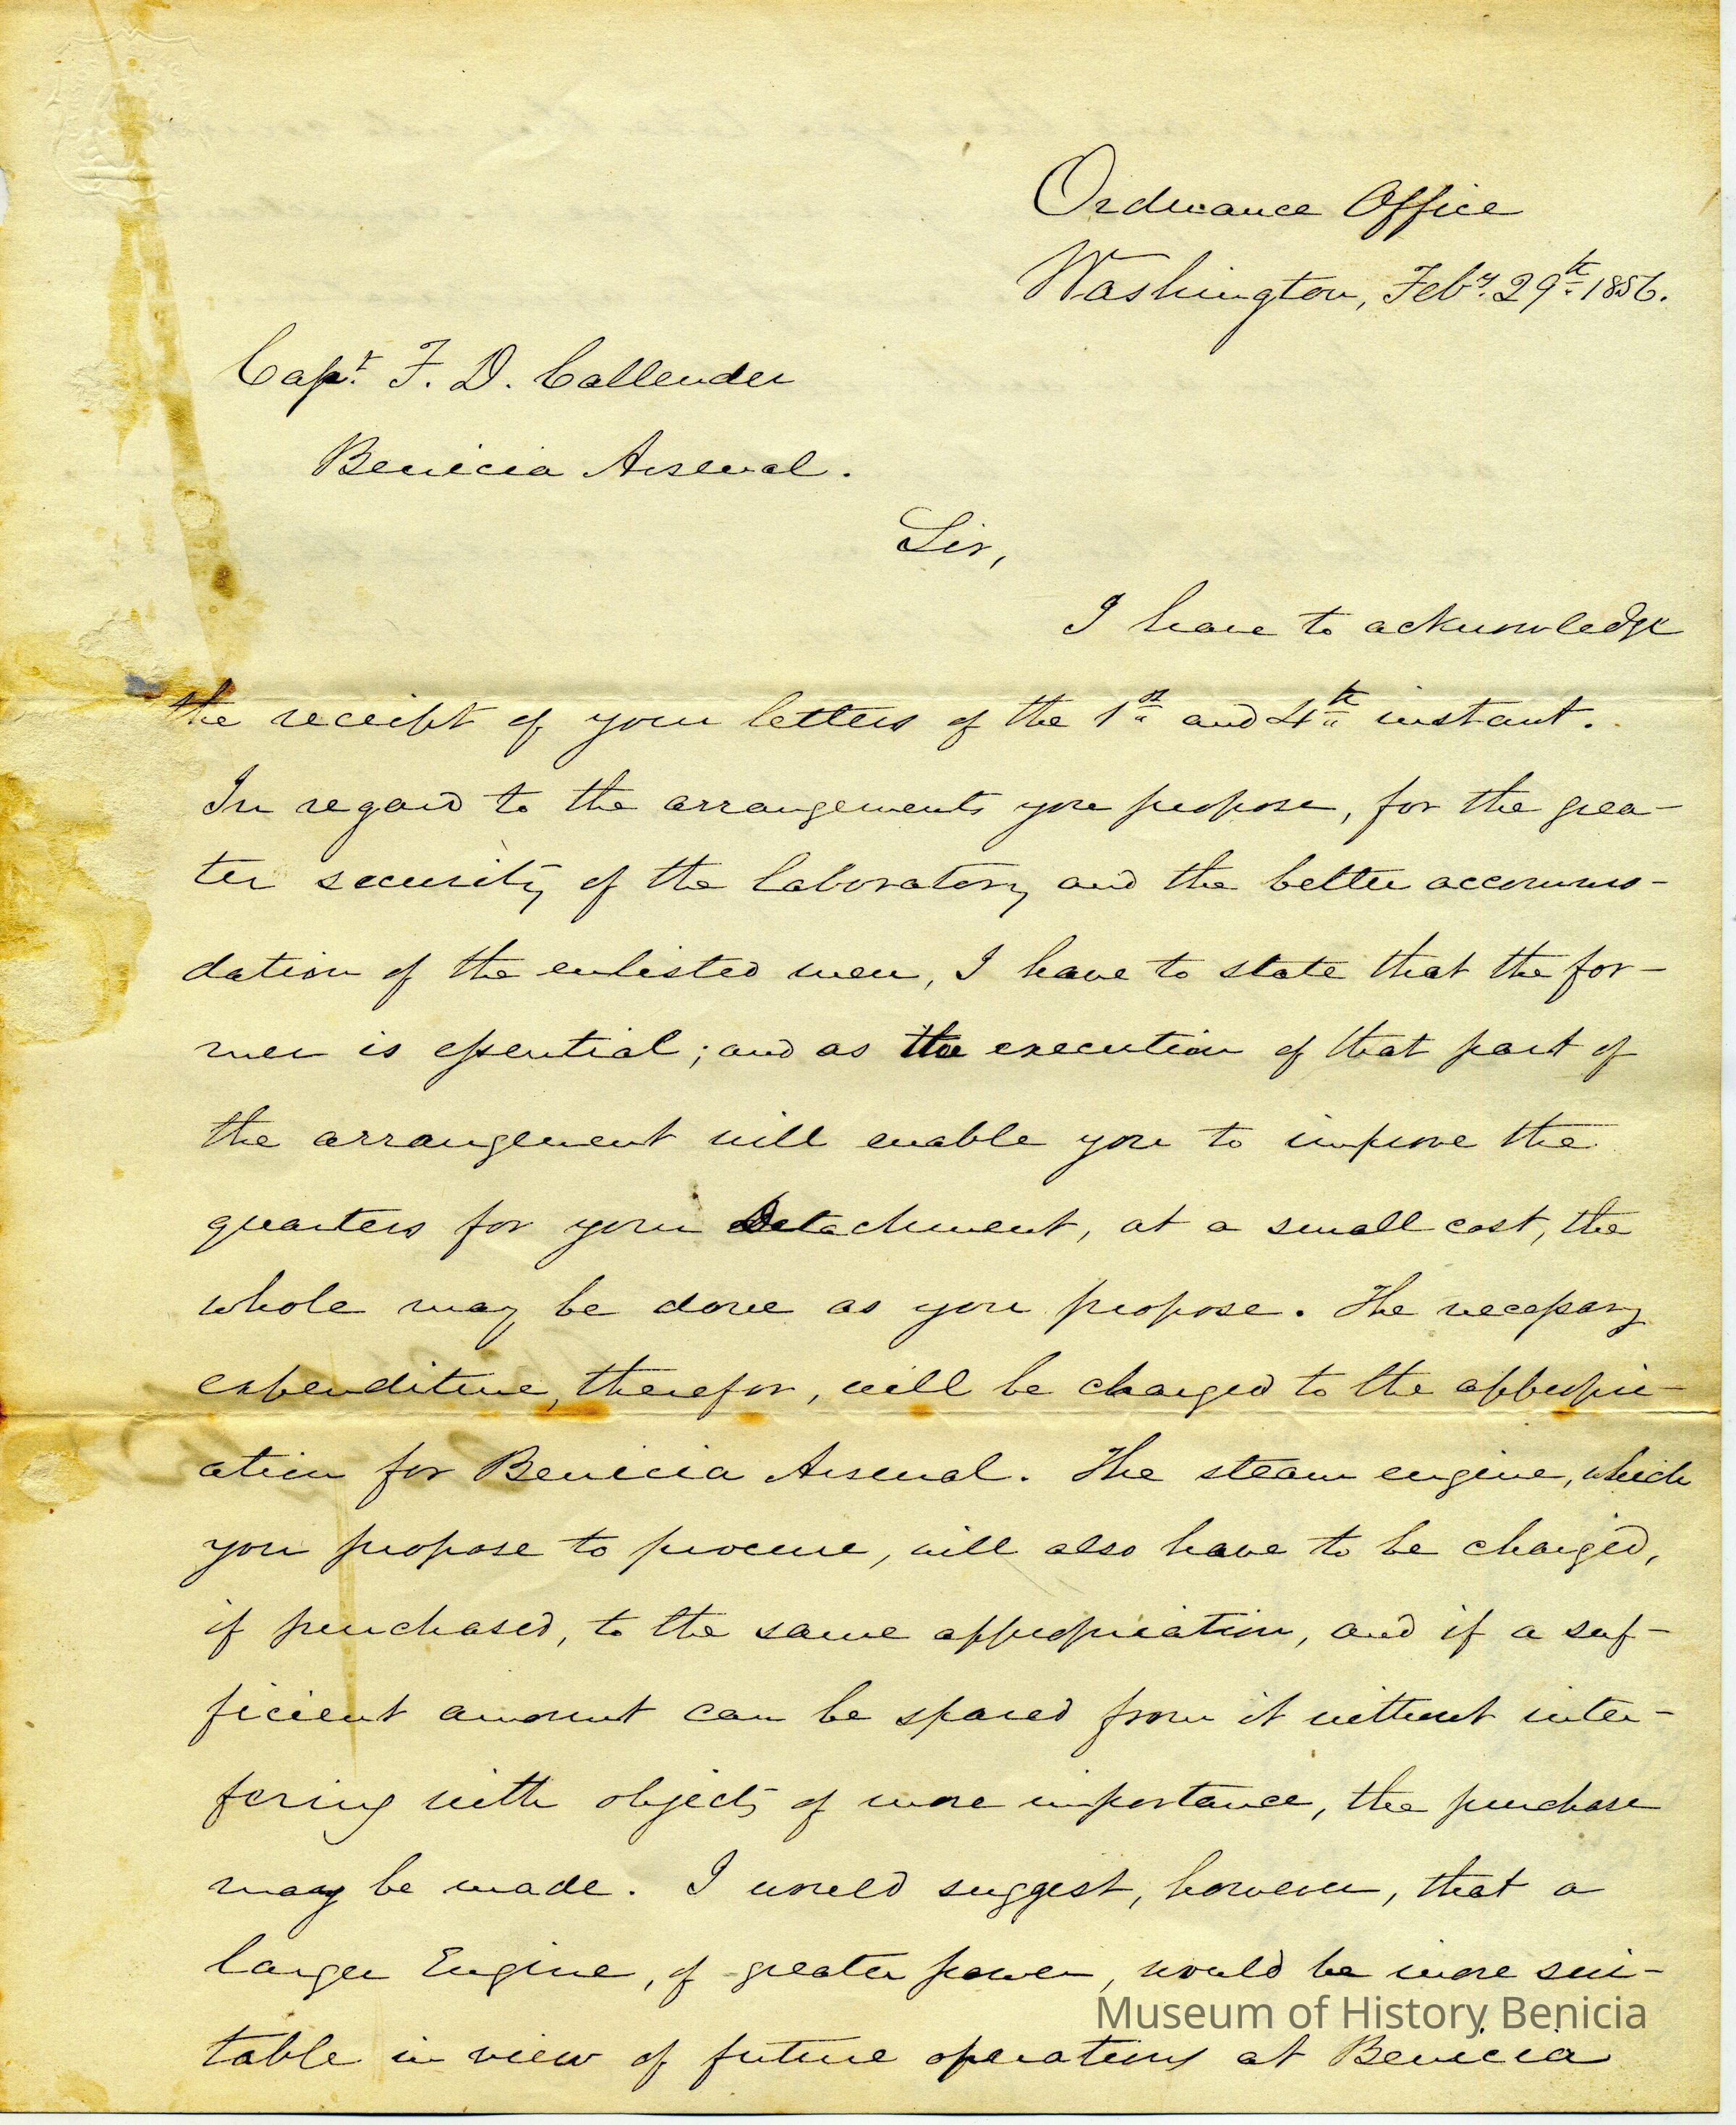 Ordnance Office
Washington, Feby. 29th 1856.
Capt. F. D. Callender
Benicia Arsenal.
Sir,
I have to acknowledge
the receipt of your letters of the 1st and 4th instant.
In regard to the arrangements you propose, for the grea-
ter security of the laboratory and the better accommo-
dation of the enlisted men, I have to state that the for-
mer is essential; and as the execution of that part of
the arrangement will enable you to improve the
quarters for your Detachment, at a small cost, the
whole may be done as you propose. The necessary
expenditure, therefor, will be charged to the appropri-
ation for Benicia Arsenal. The steam engine, which
you propose to procure, will also have to be charged,
if purchased, to the same appropriation, and if a suf-
ficient amount can be spared from it without inter-
fering with objects of more importance, the purchase
may be made. I would suggest, however, that a
larger Engine, of greater power, would be more sui-
Museum of History Benicia
table in view of future operations at Benicia